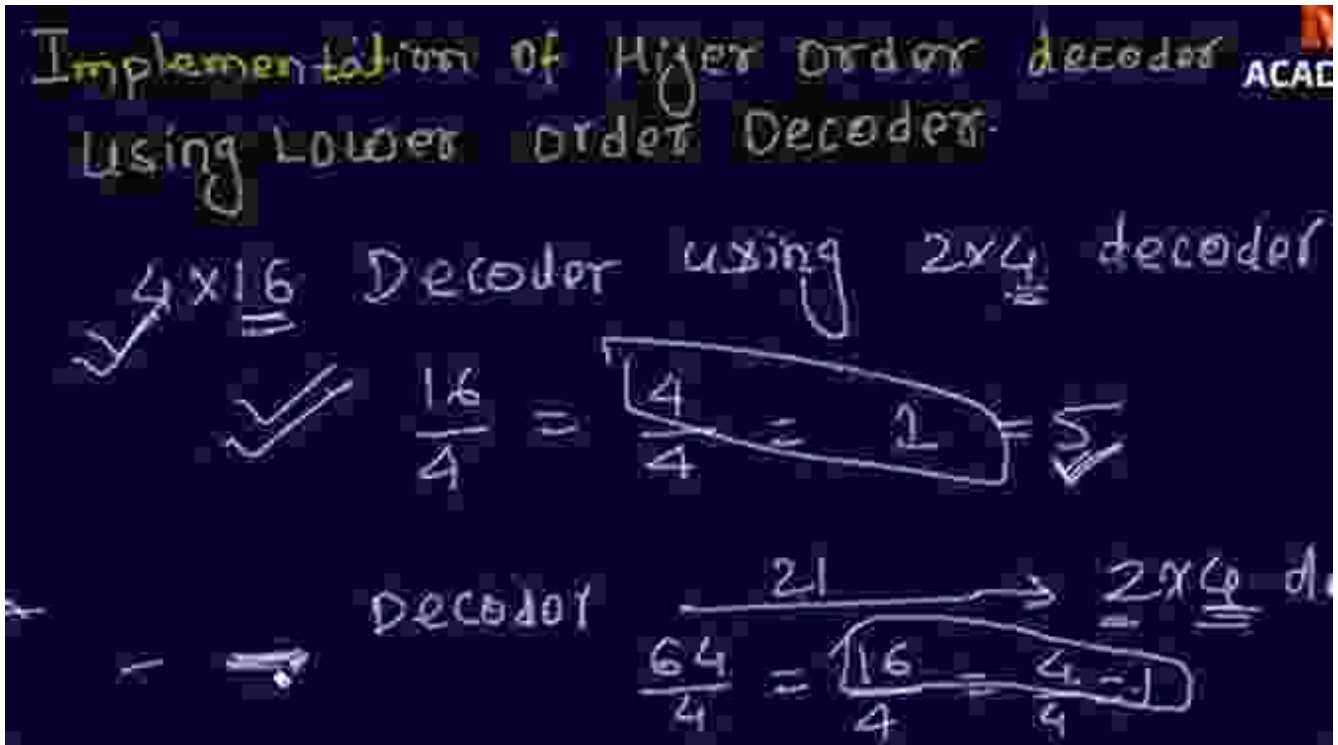 Implementation of Higer order decoder
ACAD
Using Lower order Decoder.
4x16 Decoder using 2x4 decoder
16/4 = 4/4 = 1 = 5
Decoder 21 → 2x4 de
64/4 = 16/4 = 4/4 = 1